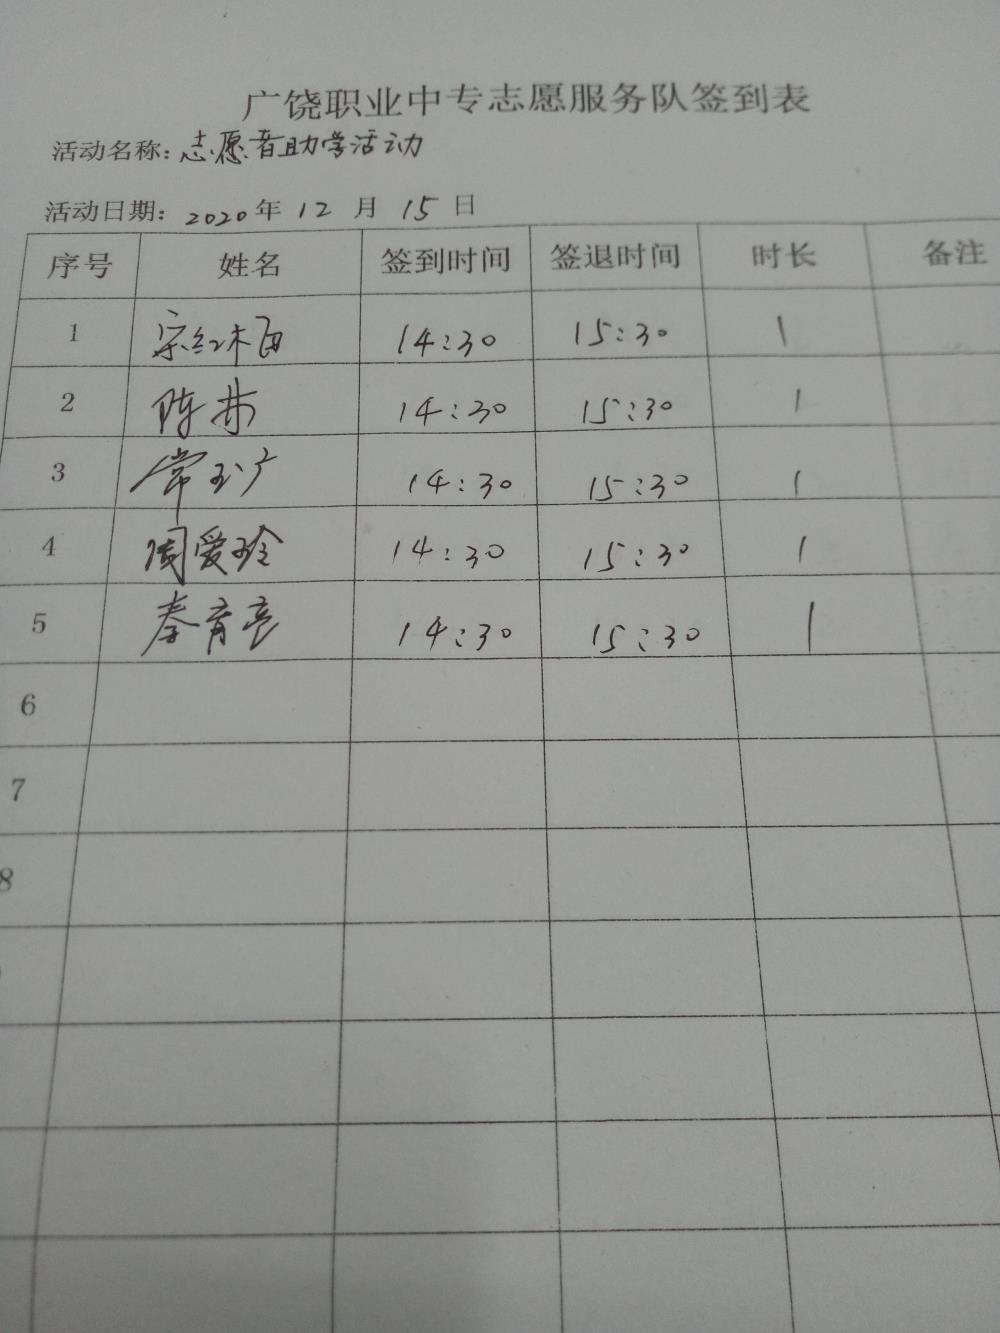 广饶职业中专志愿服务队签到表
活动名称：志愿者助学活动
活动日期：2020年 12 月 15 日
序号 姓名 签到时间 签退时间 时长 备注
1 14:30 15:30 1
2 陈 14:30 15:30 1
3 常玉广 14:30 15:30 1
4 周爱玲 14:30 15:30 1
5 秦育亮 14:30 15:30 1
6
7
8